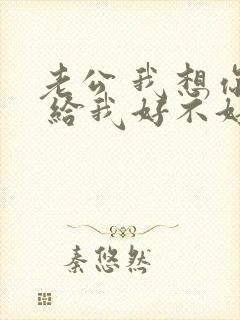 老公我想你
给我好不好
秦悠然